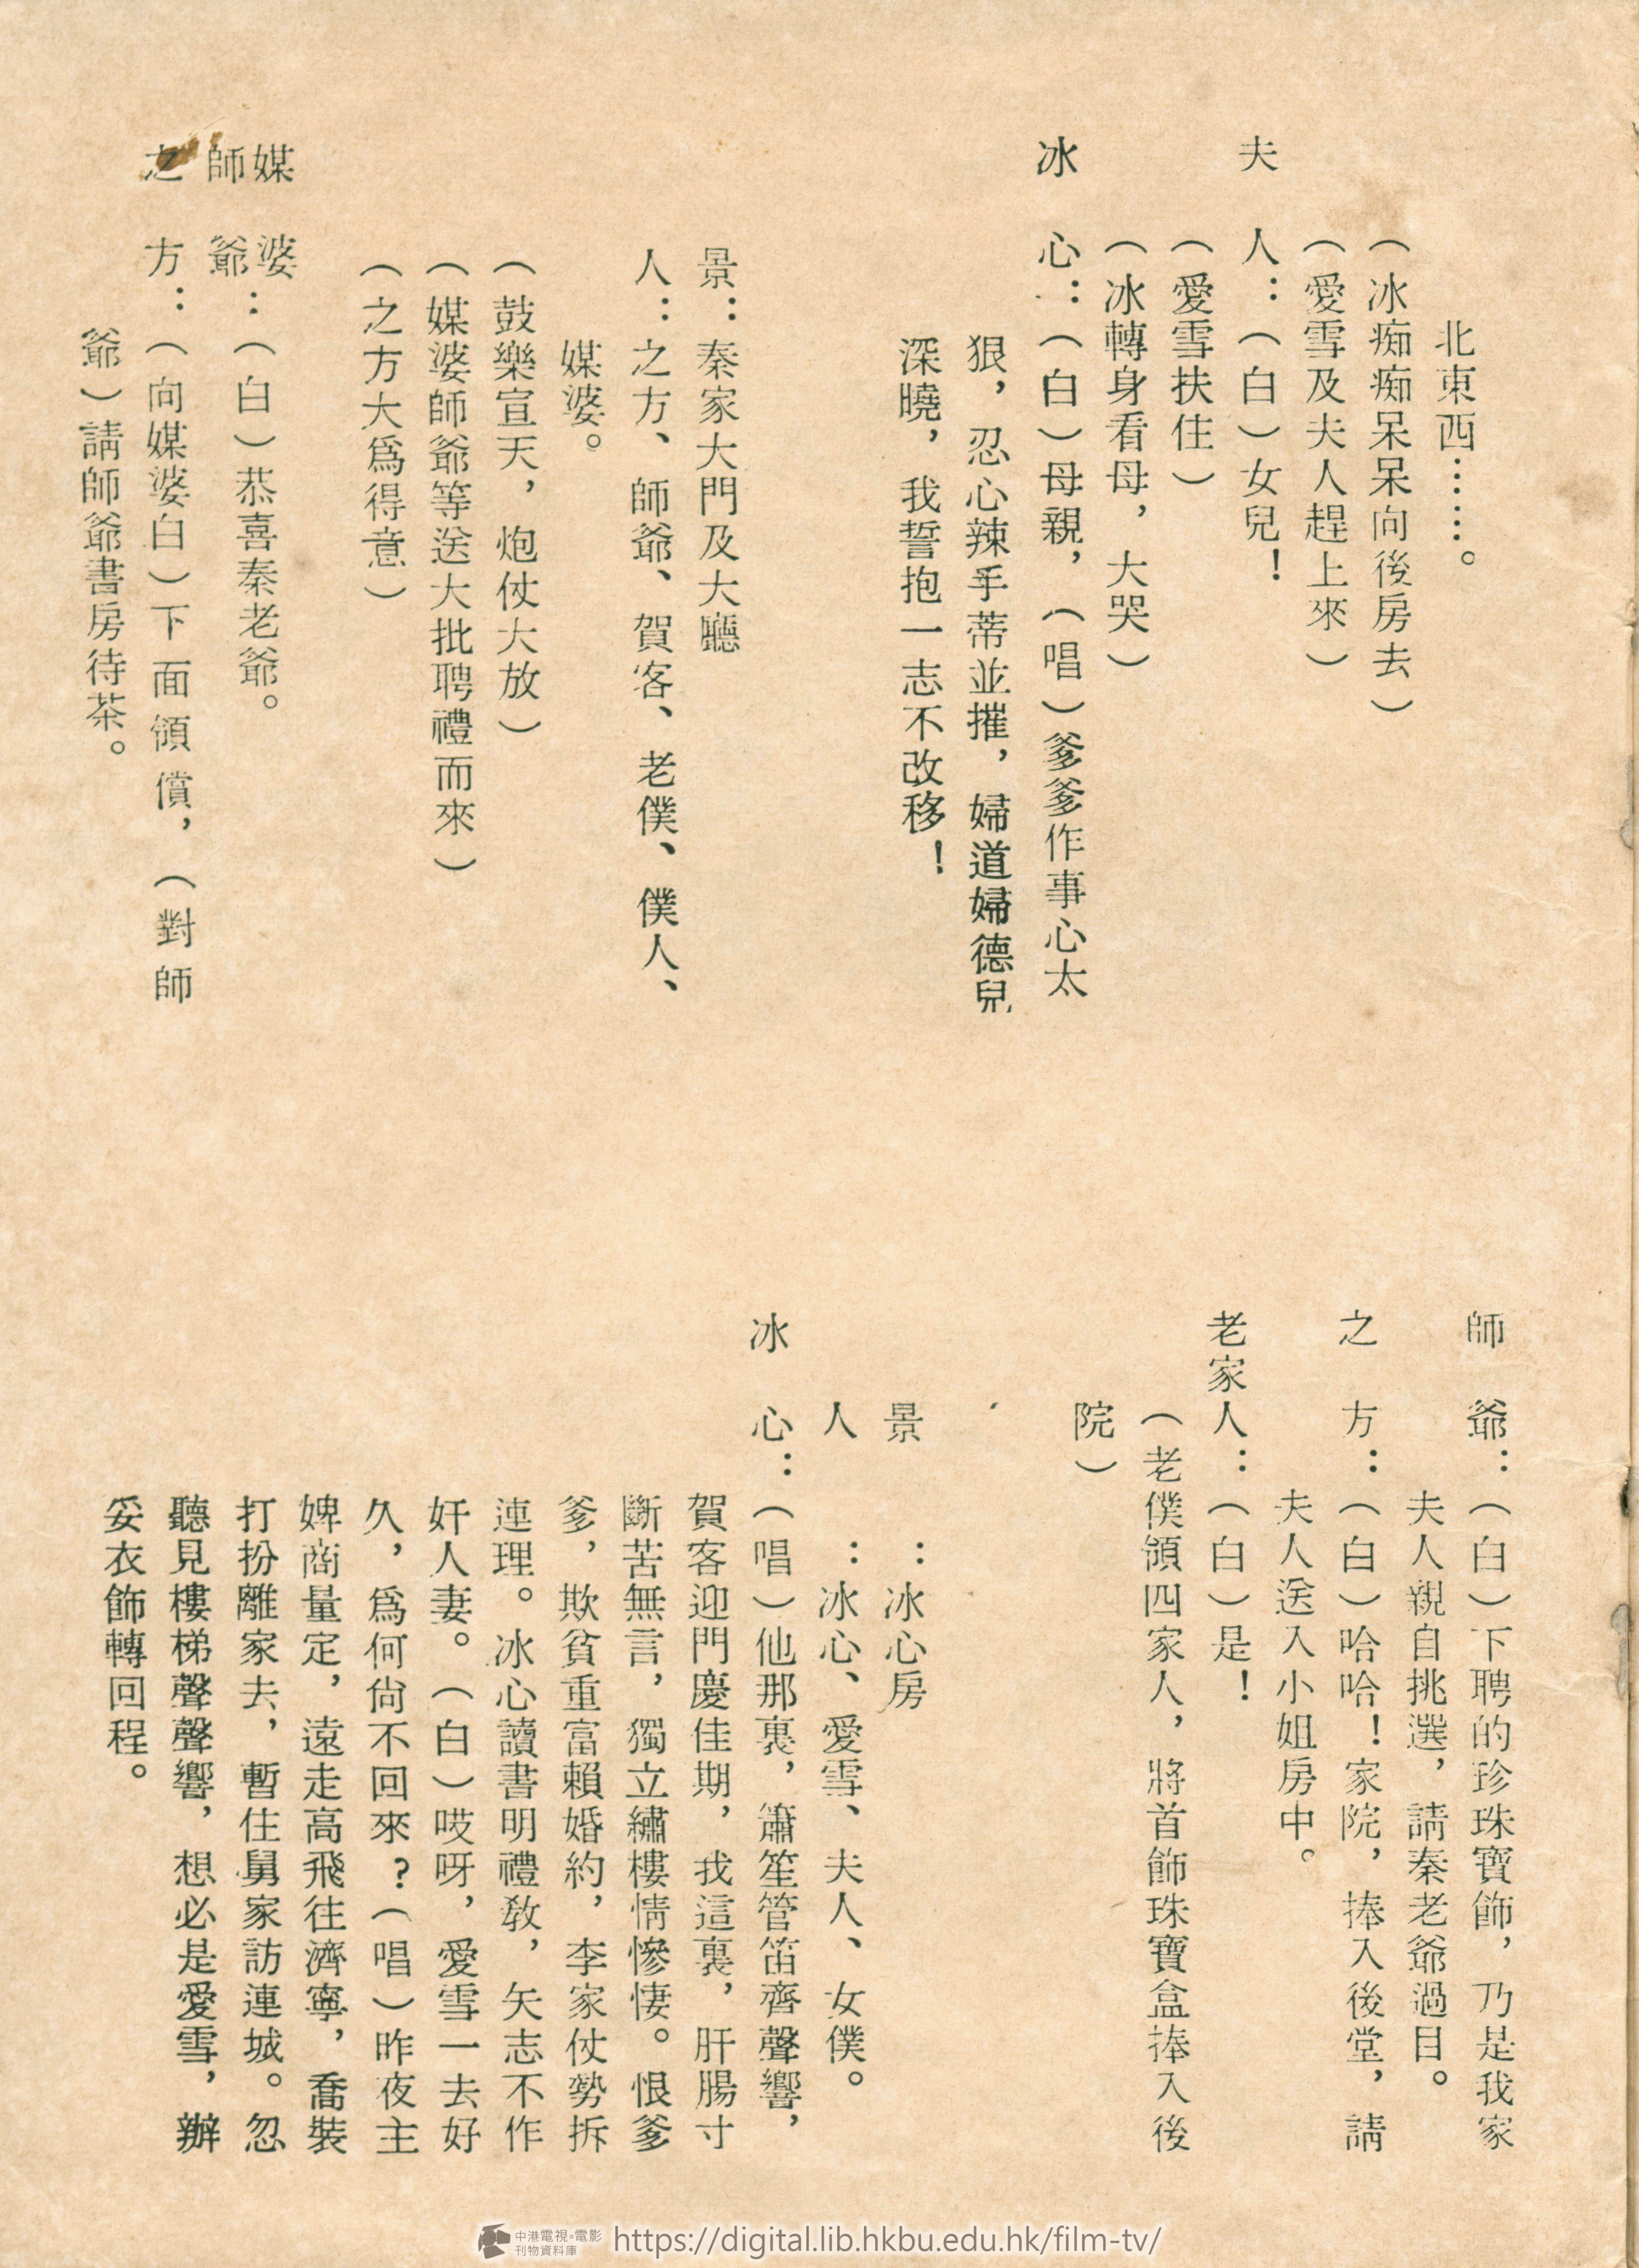 北東西……。
（冰痴痴呆呆向後房去）
（愛雪及夫人趕上來）
夫　人：（白）女兒！
（愛雪扶住）
（冰轉身看母，大哭）
冰　心：（白）母親，（唱）爹爹作事心太
狠，忍心辣手蒂並摧，婦道婦德兒
深曉，我誓抱一志不改移！
景：秦家大門及大廳
人：之方、師爺、賀客、老僕、僕人、
媒婆。
（鼓樂宣天，炮仗大放）
（媒婆師爺等送大批聘禮而來）
（之方大爲得意）
媒　婆
師　爺：（白）恭喜秦老爺。
之　方：（向媒婆白）下面領償，（對師
爺）請師爺書房待茶。
師　爺：（白）下聘的珍珠寶飾，乃是我家
夫人親自挑選，請秦老爺過目。
之　方：（白）哈哈！家院，捧入後堂，請
夫人送入小姐房中。
老家人：（白）是！
（老僕領四家人，將首飾珠寶盒捧入後
院）
景　：冰心房
人　：冰心、愛雪、夫人、女僕。
冰　心：（唱）他那裏，簫笙管笛齊聲響，
賀客迎門慶佳期，我這裏，肝腸寸
斷苦無言，獨立繡樓情慘悽。恨爹
爹，欺貧重富賴婚約，李家仗勢拆
連理。冰心讀書明禮敎，矢志不作
奸人妻。（白）哎呀，愛雪一去好
久，爲何尙不回來？（唱）昨夜主
婢商量定，遠走高飛往濟寧，喬裝
打扮離家去，暫住舅家訪連城。忽
聽見樓梯聲聲響，想必是愛雪，辦
妥衣飾轉回程。
中港電視·電影
刊物資料庫
https://digital.lib.hkbu.edu.hk/film-tv/